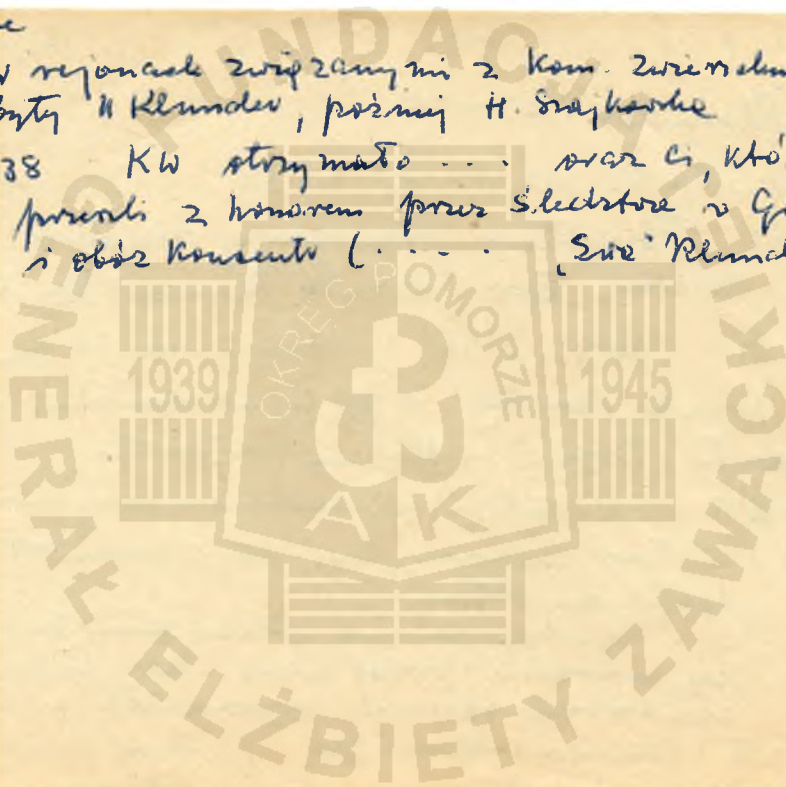 w rejonach związanymi z Kom. Zwierzchn
były H Klunder, później H. Szajkowska
38 KW otrzymało . . . oraz ci, któ
przeszli z honorem przez śledztwo w G
i obóz koncentr ( . . . . . "Ewa" Klund
FUNDACJA
GENERAŁ ELŻBIETY ZAWACKIEJ
OKRĘG POMORZE
1939
1945
AK